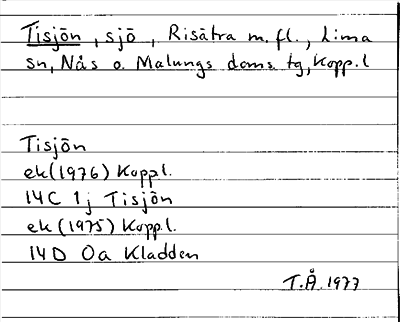 Tisjön, sjö, Risätra m.fl., Lima
sn, Nås o. Malungs doms. tg, Kopp.l
Tisjön
ek(1976) Koppl.
14C 1j Tisjön
ek(1975) Kopp.l.
14D 0a Kladden
T.Å. 1977